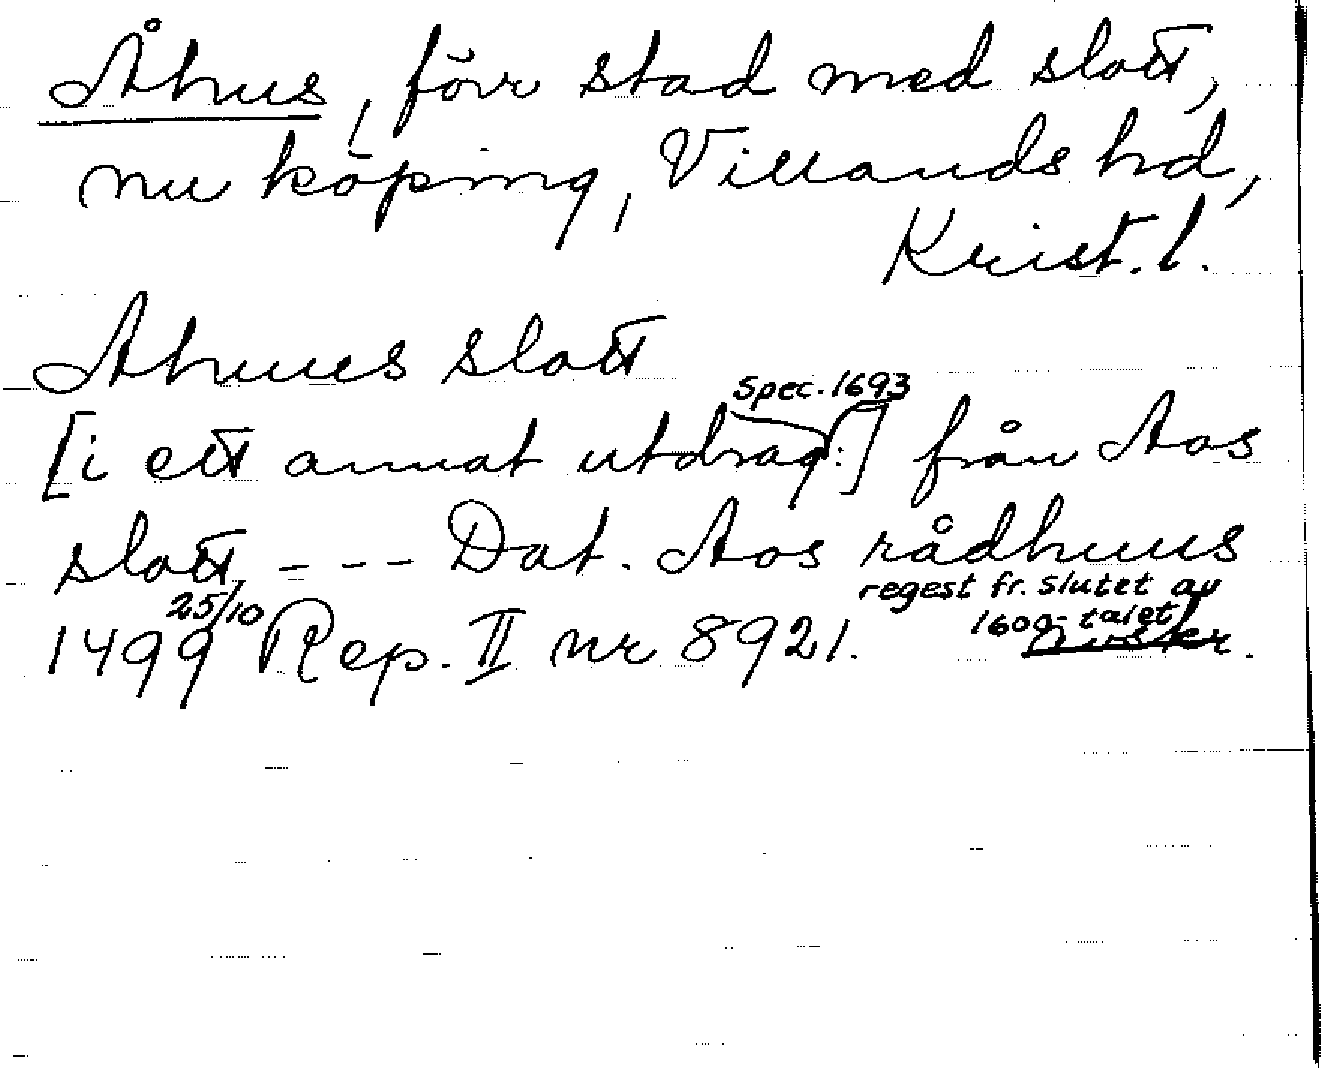 Åhus, förr stad med slott,
nu köping, Villands hd,
Krist. l.
Ahuus slott
Spec. 1693
[i ett annat utdrag:] från Aos
slott, - - - Dat. Aos rådhuus
regest fr. slutet av
25/10 1600-talet
1499 Rep. II nr 8921.